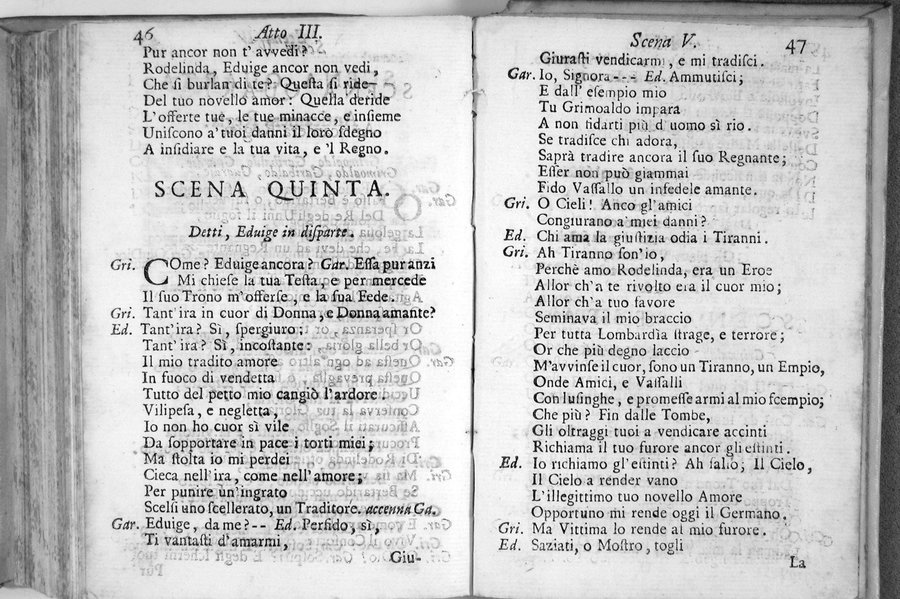 46 Atto III.
Pur ancor non t' avvedi?
Rodelinda, Eduige ancor non vedi,
Che si burlan di te? Questa si ride
Del tuo novello amor: Quella deride
L'offerte tue, le tue minacce, e insieme
Uniscono a'tuoi danni il loro sdegno
A insidiare e la tua vita, e 'l Regno.
SCENA QUINTA.
Detti, Eduige in disparte.
Gri. COme? Eduige ancora? Gar. Essa pur anzi
Mi chiese la tua Testa, e per mercede
Il suo Trono m'offerse, e la sua Fede.
Gri. Tant'ira in cuor di Donna, e Donna amante?
Ed. Tant'ira? Sì, spergiuro:
Tant'ira? Sì, incostante:
Il mio tradito amore
In fuoco di vendetta
Tutto del petto mio cangiò l'ardore.
Vilipesa, e negletta,
Io non ho cuor sì vile
Da sopportare in pace i torti miei;
Ma stolta io mi perdei
Cieca nell'ira, come nell'amore;
Per punire un'ingrato
Scelsi uno scellerato, un Traditore. accenna Ga.
Gar. Eduige, da me?-- Ed. Perfido, sì,
Ti vantasti d'amarmi,
Giu-
Scena V. 47
Giurasti vendicarmi, e mi tradisci.
Gar. Io, Signora--- Ed. Ammutisci;
E dall' esempio mio
Tu Grimoaldo impara
A non fidarti più d'uomo sì rio.
Se tradisce chi adora,
Saprà tradire ancora il suo Regnante;
Esser non può giammai
Fido Vassallo un infedele amante.
Gri. O Cieli! Anco gl'amici
Congiurano a'miei danni?
Ed. Chi ama la giustizia odia i Tiranni.
Gri. Ah Tiranno son'io,
Perchè amo Rodelinda, era un Eroe
Allor ch'a te rivolto era il cuor mio;
Allor ch'a tuo favore
Seminava il mio braccio
Per tutta Lombardìa strage, e terrore;
Or che più degno laccio
M'avvinse il cuor, sono un Tiranno, un Empio,
Onde Amici, e Vassalli
Con lusinghe, e promesse armi al mio scempio;
Che più? Fin dalle Tombe,
Gli oltraggi tuoi a vendicare accinti
Richiama il tuo furore ancor gli estinti.
Ed. Io richiamo gl'estinti? Ah falso; Il Cielo,
Il Cielo a render vano
L'illegittimo tuo novello Amore
Opportuno mi rende oggi il Germano.
Gri. Ma Vittima lo rende al mio furore.
Ed. Saziati, o Mostro, togli
La